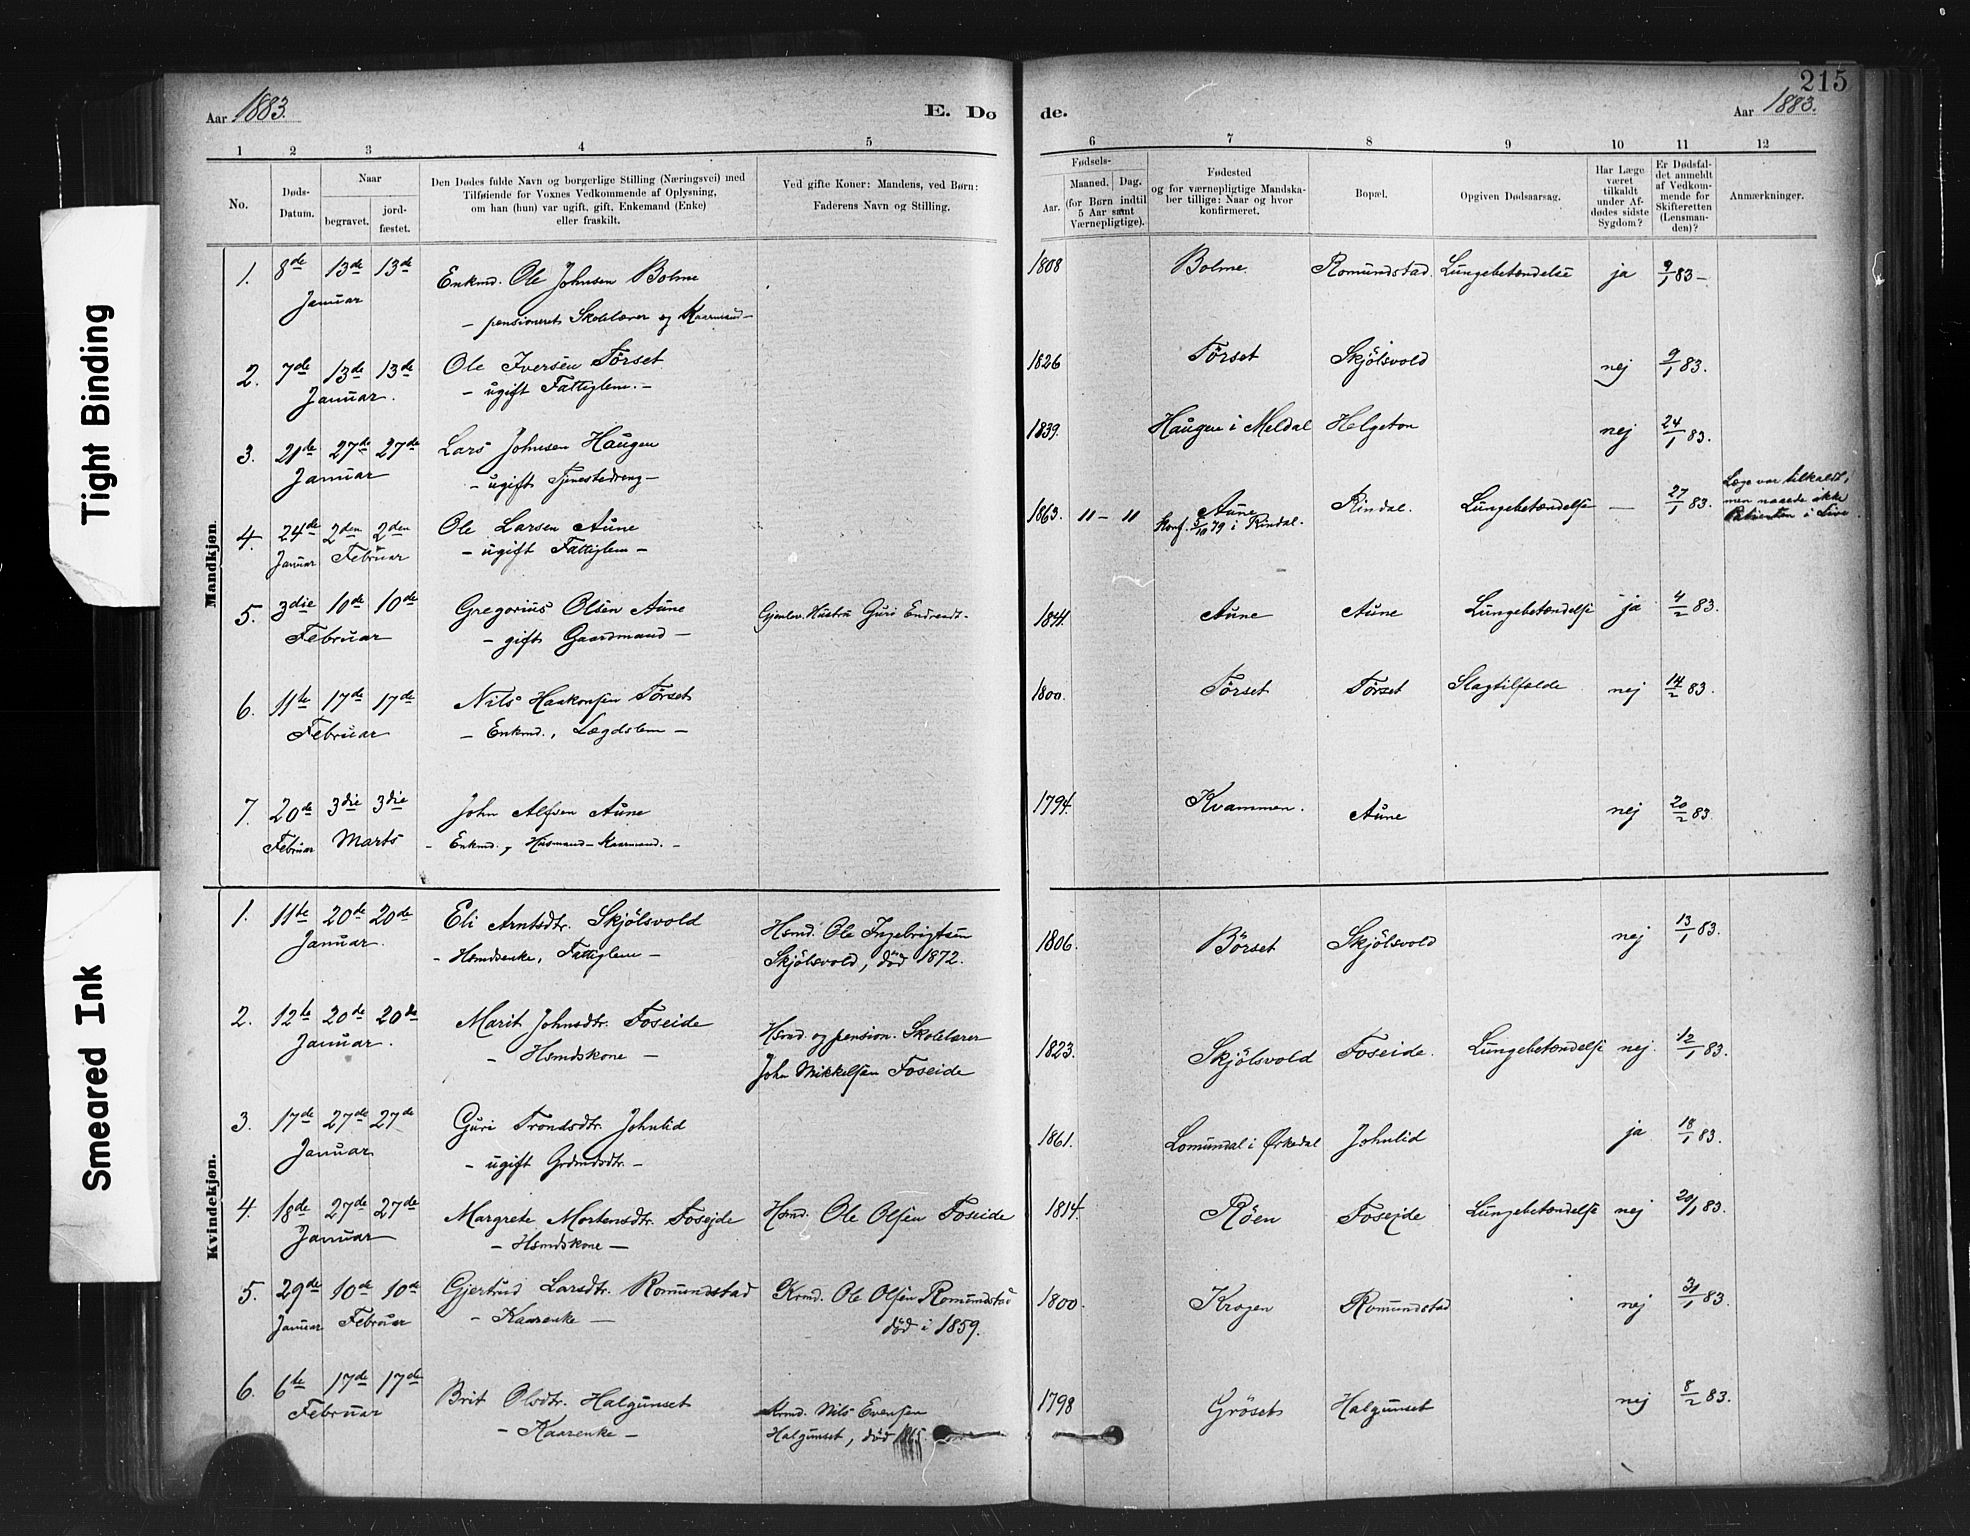 215
Aar 1883. E. Do de. Aar 1883.
1 2 3 4 5 6 7 8 9 10 11 12
No. Døds-Datum. Naar begravet. jordfæstet. Den Dødes fulde Navn og borgerlige Stilling (Næringsvei) med Tilføiende for Voxnes Vedkommende af Oplysning, om han (hun) var ugift, gift, Enkemand (Enke) eller fraskilt. Ved gifte Koner: Mandens, ved Børn: Faderens Navn og Stilling. Fødsels- Aar. Maaned. Dag. (for Børn indtil 5 Aar samt Værnepligtige). Fødested og for værnepligtige Mandskaber tillige: Naar og hvor konfirmeret. Bopæl. Opgiven Dødsaarsag. Har Læge været tilkaldt under Afdødes sidste Sygdom? Er Dødsfaldet anmeldt af Vedkommende for Skifteretten (Lensmanden)? Anmærkninger.
Tight Binding
Smeared Ink
Mandkjøn.
1. 8de 13de 13de Enkmd. Ole Johnsen Bolme 1808 Bolme. Romundstad. Lungebetændelse ja 9/1 83 –
Januar – pensioneret Skolelærer og Kaarmand –
2. 7de 13de 13de Ole Iversen Tørset 1826 Tørset Skjölsvold nej 9/1 83.
Januar. – ugift Fattiglem. –
3. 21de 27de 27de Lars Johnsen Haugen 1839. Haugen i Meldal Helgeton nej 24/1 83.
Januar – ugift Tjenestedreng –
4. 24de 2den 2den Ole Larsen Aune 1863. 11 – 11 Aune Rindal. Lungebetændelse — 27/1 83. Læge var tilkaldt, men naaede ikke Patienten i Live.
Januar Februar – ugift Fattiglem – Konf. 5/10 79 i Rindal.
5. 3die 10de 10de Gregorius Olsen Aune Gjenlev. Hustru Guri Endresdt. 1844. Aune Aune Lungebetændelse ja 4/2 83.
Februar – gift Gaardmand –
6. 11te 17de 17de Nils Haakonsen Tørset 1800. Tørset Tørset Slagtilfælde nej 14/2 83.
Februar – Enkmd., Lægdslem –
7. 20de 3die 3die John Alfsen Aune 1794. Kvammen. Aune nej 20/2 83.
Februar Marts – Enkmd., Husmand-Kaarmand. –
Kvindekjøn.
1. 11te 20de 20de Eli Arntsdtr. Skjölsvold Hsmd. Ole Ingebrigtsen 1806. Börset Skjölsvold nej 13/1 83.
Januar. – Hsmdsenke, Fattiglem – Skjölsvold, död 1872.
2. 12te 20de 20de Marit Johnsdtr. Foseide Hsmd og pension. Skolelærer 1823. Skjölsvold Foseide. Lungebetændelse nej. 12/1 83.
Januar. – Hsmdskone – John Mikkelsen Foseide
3. 17de 27de 27de Guri Trondsdtr. Johnlid 1861. Lomundal i Ørkedal Johnlid ja 18/1 83.
Januar – ugift Grdmdsdtr. –
4. 18de 27de 27de Margrete Mortensdtr. Fosejde Hsmd. Ole Olsen Foseide 1814. Röen Fosejde Lungebetændelse nej 20/1 83.
Januar – Hsmdskone –
5. 29de 10de 10de Gjertrud Larsdtr. Romundstad Krmd. Ole Olsen Romundstad 1800. Krogen Romundstad nej 31/1 83.
Januar Februar – Kaarenke – död i 1859.
6. 6te 17de 17de Brit Olsdtr. Halgunset Krmd. Nils Evensen 1798 Gröset Halgunset nej 8/2 83.
Februar – Kaarenke – Halgunset, död